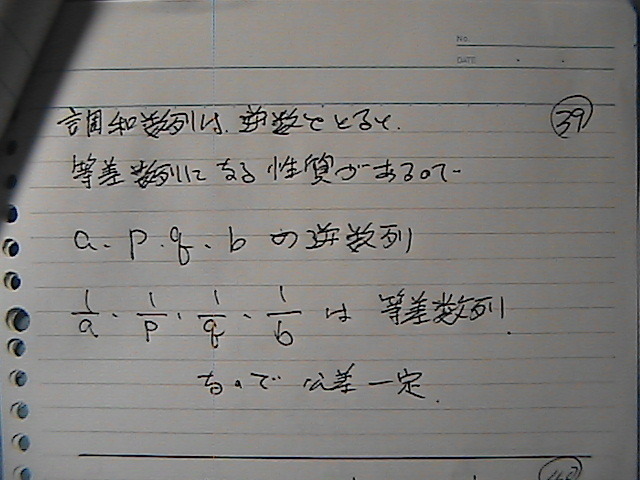 No.
DATE
調和数列は、逆数をとると、 39
等差数列になる性質があるので
a、p、q、bの逆数列
1/a、1/p、1/q、1/b は 等差数列.
なので 公差一定.